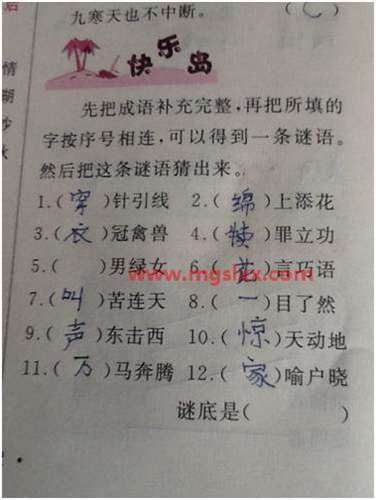 九寒天也不中断。
快乐岛
情
先把成语补充完整,再把所填的
字按序号相连,可以得到一条谜语。
然后把这条谜语猜出来。
1.(穿)针引线 2.(绵)上添花
3.(衣)冠禽兽 4.( )罪立功
5.( )男绿女 6.(花)言巧语
7.(叫)苦连天 8.(一)目了然
9.(声)东击西 10.(惊)天动地
11.(万)马奔腾 12.(家)喻户晓
谜底是( )